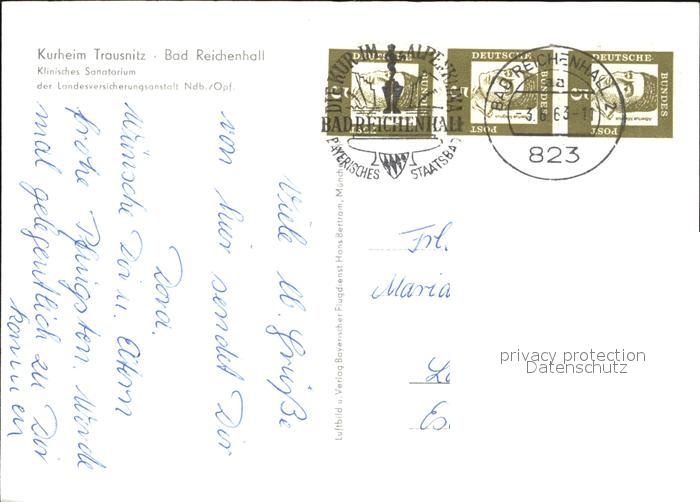 Kurheim Trausnitz · Bad Reichenhall
Klinisches Sanatorium
der Landesversicherungsanstalt Ndb./Opf.
DIE KUR IM ALPENKLIMA
BAD REICHENHALL
BAYERISCHES STAATSBAD
DEUTSCHE BUNDESPOST
15
DEUTSCHE BUNDESPOST
DEUTSCHE BUNDESPOST
15
BAD REICHENHALL 2
aa
3.6.63-11
823
Viele lb. Grüße
von hier sendet Dir
Dora.
Wünsche Dir u. Eltern
frohe Pfingsten. Würde
mal gelegentlich zu Dir
kommen
Luftbild u. Verlag Bayerischer Flugdienst Hans Bertram, Münch
Frl.
Maria
Es
privacy protection
Datenschutz